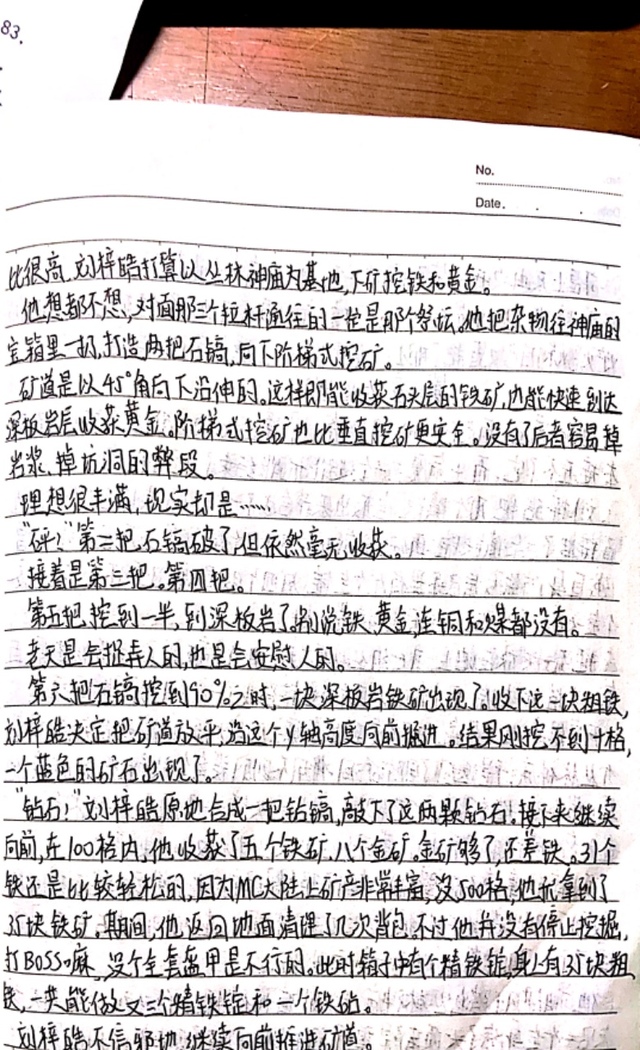 83.
No.
Date.
比很高,刘梓皓打算以丛林神庙为基地,下矿挖铁和黄金。
他想都不想,对面那三个拉杆通往的一定是那个祭坛,他把杂物往神庙的
宝箱里一扔,打造两把石镐,向下阶梯式挖矿。
矿道是以45°角向下沿伸的。这样即能收获石头层的铁矿,也能快速到达
深板岩层收获黄金。阶梯式挖矿也比垂直挖矿更安全。没有了后者容易掉
岩浆、掉坑洞的弊段。
理想很丰满,现实却是……
“砰!”第二把石镐破了,但依然毫无收获。
接着是第三把。第四把。
第五把挖到一半,到深板岩了,别说铁、黄金,连铜和煤都没有。
老天是会捉弄人的,也是会安慰人的。
第六把石镐挖到90%之时,一块深板岩铁矿出现了。收下这一块粗铁,
刘梓皓决定把矿道放平,沿这个y轴高度向前掘进。结果刚挖不到十格,
一个蓝色的矿石出现了。
“钻石!”刘梓皓原地合成一把铁镐,敲下了这两颗钻石。接下来继续
向前,在100格内,他收获了五个铁矿、八个金矿。金矿够了,还差铁。31个
铁还是比较轻松的,因为MC大陆上矿产非常丰富,没500格,他就拿到了
35块铁矿。期间,他返回地面清理了几次背包。不过他并没有停止挖掘,
打BOSS嘛,没个全套盔甲是不行的。此时箱子中有个精铁锭,身上有35块粗
铁,一共能做又三个精铁锭和一个铁砧。
刘梓皓不信邪地继续向前推进矿道。